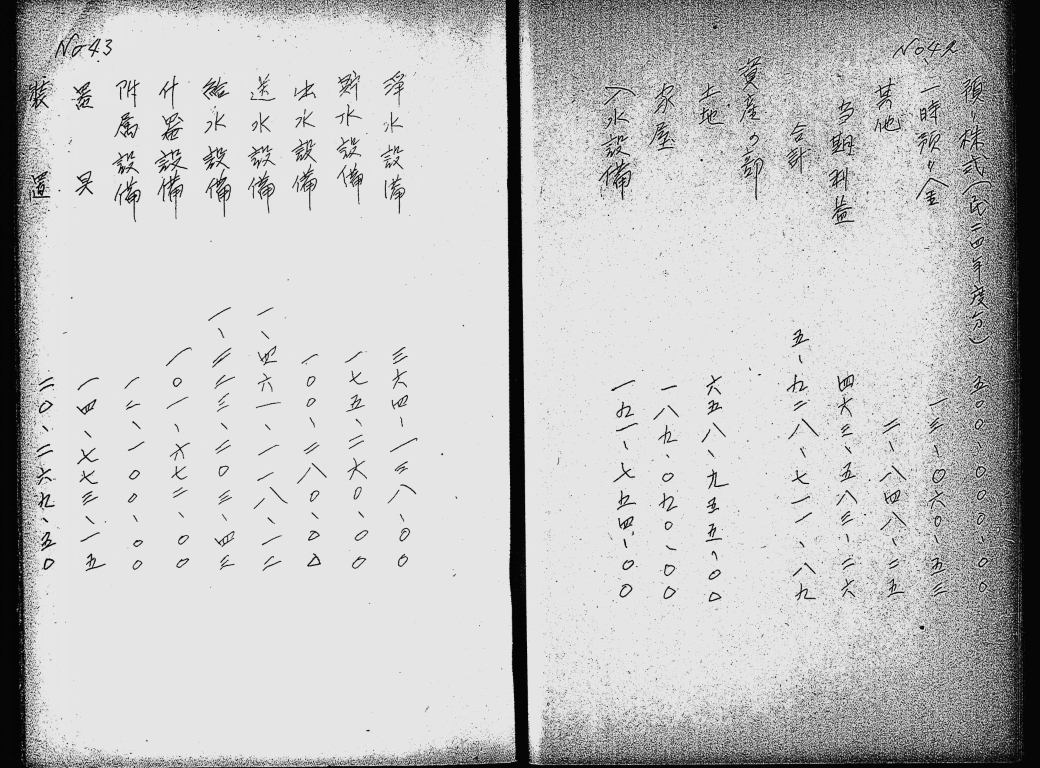 No 42
預リ株式(民二四年度分) 五〇〇、〇〇〇、〇〇
一時預リ金 一三、〇六〇、五三
其他 二、八四八、二五
当期利益 四六三、五八三、二六
合計 五、九二八、七一一、八九
資産の部
土地 六五八、九五五、〇〇
家屋 一八九、〇九〇、〇〇
入水設備 一九一、七五四、〇〇
No 43
淨水設備 三六四、一三八、〇〇
貯水設備 一七五、二六〇、〇〇
出水設備 一〇〇、二八〇、〇〇
送水設備 一、四六一、一一八、一二
給水設備 一、三三三、三〇三、四三
什器設備 一〇一、六七二、〇〇
附属設備 一二、一〇〇、〇〇
器具 一四、七七三、一五
装置 二〇、二六九、五〇